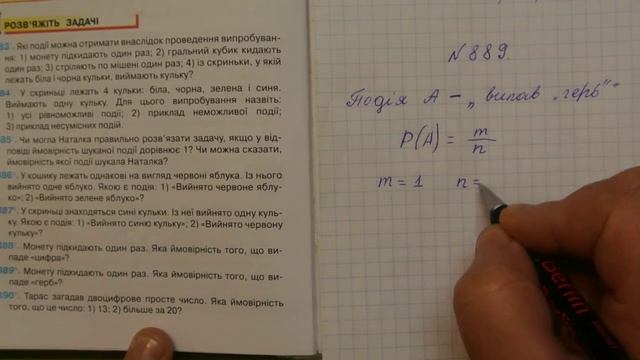 РОЗВ'ЯЖІТЬ ЗАДАЧІ
83°. Які події можна отримати внаслідок проведення випробуван-
ня: 1) монету підкидають один раз; 2) гральний кубик кидають
один раз; 3) стріляють по мішені один раз; 4) із скриньки, у якій
лежать біла і чорна кульки, виймають кульку?
84°. У скриньці лежать 4 кульки: біла, чорна, зелена і синя.
Виймають одну кульку. Для цього випробування назвіть:
1) усі рівноможливі події; 2) приклад неможливої події;
3) приклад несумісних подій.
85°. Чи могла Наталка правильно розв'язати задачу, якщо у від-
повіді ймовірність шуканої події дорівнює 1? Чи можна сказати,
ймовірність якої події шукала Наталка?
886°. У кошику лежать однакові на вигляд червоні яблука. Із нього
вийнято одне яблуко. Якою є подія: 1) «Вийнято червоне яблу-
ко»; 2) «Вийнято зелене яблуко»?
887°. У скриньці знаходяться сині кульки. Із неї вийнято одну куль-
ку. Якою є подія: 1) «Вийнято синю кульку»; 2) «Вийнято червону
кульку»?
888°. Монету підкидають один раз. Яка ймовірність того, що ви-
паде «цифра»?
889°. Монету підкидають один раз. Яка ймовірність того, що ви-
паде «герб»?
890°. Тарас загадав двоцифрове просте число. Яка ймовірність
того, що це число: 1) 13; 2) більше за 20?
N 889.
Подія А – „випав „герб"".
P(A) = m/n
m = 1 n =